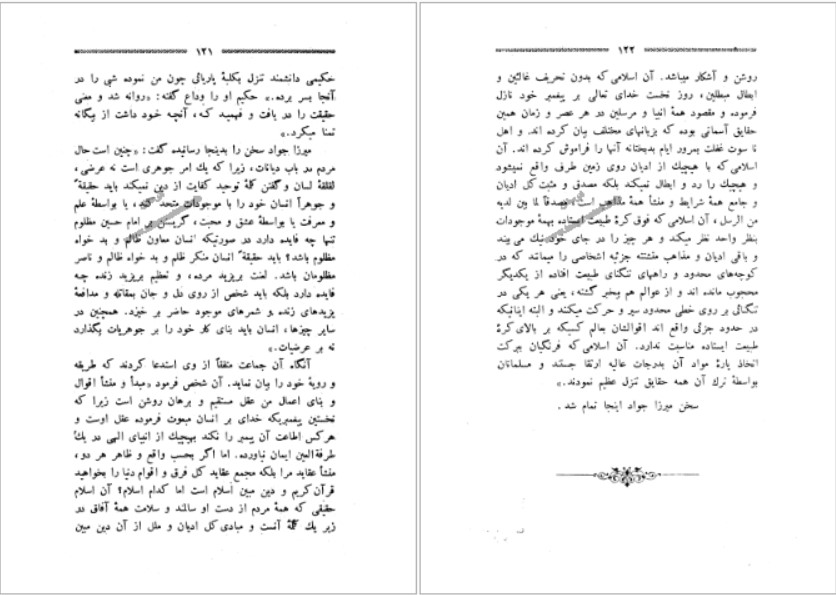 ۱۲۱
حکیمی دانشمند تنزل بکلبهٔ یاربافی چون من نموده شبی را در
آنجا بسر برده.» حکیم او را وداع گفته: «روانه شد و معنی
حقیقت را در یافت و فهمید که، آنچه خود داشت از بیگانه
تمنا میکرد.»
میرزا جواد سخن را بدینجا رسانیده گفت: «چنین است حال
مردم در باب دیانات، زیرا که یك امر جوهری است نه عرضی،
لقلقهٔ لسان و گفتن کلمهٔ توحید کفایت از دین نمیکند باید حقیقةً
و جوهراً انسان خود را با موجودات متحد کند، یا بواسطهٔ علم
و معرفت یا بواسطهٔ عشق و محبت، گریستن بر امام حسین مظلوم
تنها چه فایده دارد در صورتیکه انسان معاون ظالم و بد خواه
مظلوم باشد؟ باید حقیقةً انسان منکر ظلم و بد خواه ظالم و ناصر
مظلومان باشد. لعنت بریزید مرده، و تعظیم بریزید زنده چه
فایده دارد بلکه باید شخص از روی دل و جان بمقاتله و مدافعهٔ
یزیدهای زنده و شمرهای موجود حاضر بر خیزد. همچنین در
سایر چیزها، انسان باید بنای کار خود را بر جوهریات بگذارد
نه بر عرضیات.»
آنگاه آن جماعت متفقاً از وی استدعا کردند که طریقه
و رویهٔ خود را بیان نماید. آن شخص فرمود «مبدأ و منشأ اقوال
و بنای اعمال من عقل مستقیم و برهان روشن است زیرا که
نخستین پیغمبریکه خدای بر انسان مبعوث فرموده عقل اوست و
هرکس اطاعت آن پیمبر را نکند بهیچیك از انبیای الهی در یك
طرفة العین ایمان نیاورده. اما اگر بحسب واقع و ظاهر هر دو،
منشأ عقاید مرا بلکه مجمع عقاید کل فرق و اقوام دنیا را بخواهید
قرآن کریم و دین مبین اسلام است اما کدام اسلام؟ آن اسلام
حقیقی که همهٔ مردم از دست او سالمند و سلامت همهٔ آفاق در
زیر یك کلمهٔ آنست و مبادی کل ادیان و ملل از آن دین مبین
۱۲۲
روشن و آشکار میباشد. آن اسلامی که بدون تحریف غالئین و
ابطال مبطلین، روز نخست خدای تعالی بر پیغمبر خود نازل
فرموده و مقصود همهٔ انبیا و مرسلین در هر عصر و زمان همین
حقایق آسمانی بوده که بزبانهای مختلف بیان کرده اند. و اهل
نا سوت غفلت بمرور ایام بدبختانه آنها را فراموش کرده اند. آن
اسلامی که با هیچیك از ادیان روی زمین طرف واقع نمیشود
و هیچیك را رد و ابطال نمیکند بلکه مصدق و مثبت کل ادیان
و جامع همهٔ شرایط و منشأ همهٔ مذاهب است. مصدقاً لما بین لدیه
من الرسل، آن اسلامی که فوق کرهٔ طبیعت ایستاده بهمهٔ موجودات
بنظر واحد نظر میکند و هر چیز را در جای خود نیك می بیند
و باقی ادیان و مذاهب متشتته جزئیه اشخاصی را میمانند که در
کوچه‌های محدود و راههای تنگنای طبیعت افتاده از یکدیگر
محجوب مانده اند و از عوالم هم بیخبر گشته، یعنی هر یکی در
تنگنائی بر روی خطی محدود سیر و حرکت میکنند و البته اینانیکه
در حدود جزئی واقع اند اقوالشان بحالم کسیکه بر بالای کرهٔ
طبیعت ایستاده مناسبت ندارد. آن اسلامی که فرنگیان ببرکت
اتخاذ پارهٔ مواد آن بدرجات عالیه ارتقا جستند و مسلمانان
بواسطهٔ ترك آن همه حقایق تنزل عظیم نمودند.»
سخن میرزا جواد اینجا تمام شد.